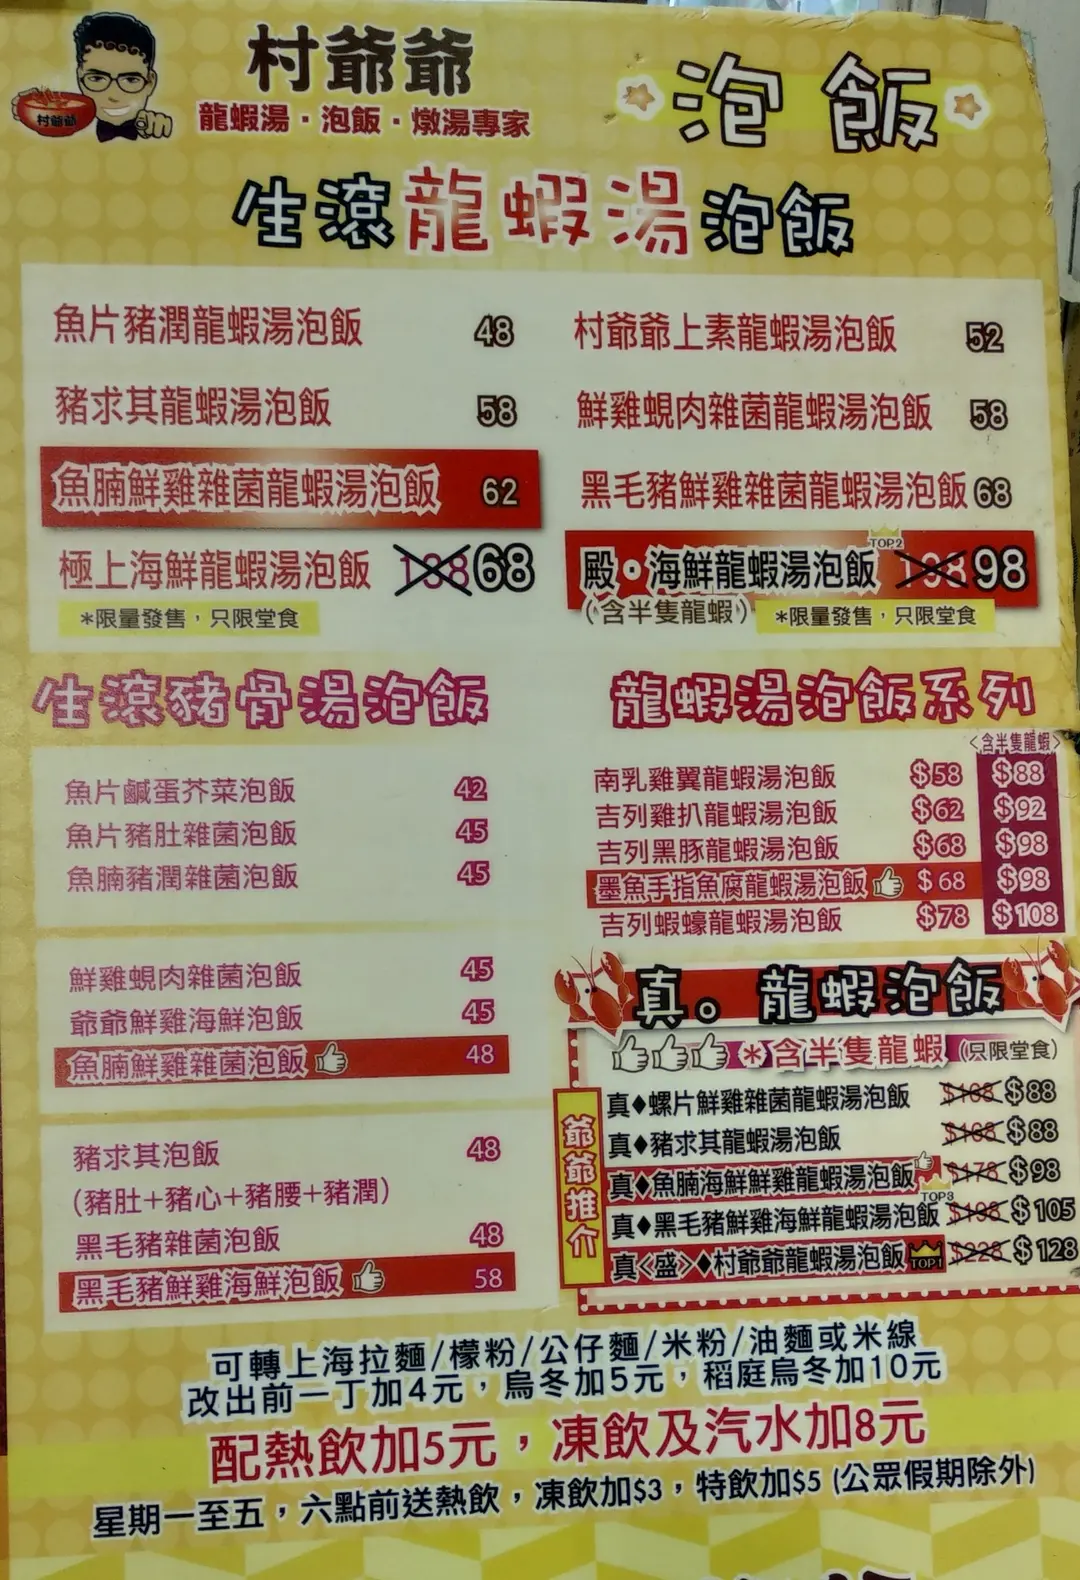 村爺爺
村爺爺
龍蝦湯·泡飯·燉湯專家
泡飯
生滾龍蝦湯泡飯
魚片豬潤龍蝦湯泡飯 48
豬求其龍蝦湯泡飯 58
魚腩鮮雞雜菌龍蝦湯泡飯 62
極上海鮮龍蝦湯泡飯 138 68
*限量發售，只限堂食
村爺爺上素龍蝦湯泡飯 52
鮮雞蜆肉雜菌龍蝦湯泡飯 58
黑毛豬鮮雞雜菌龍蝦湯泡飯 68
殿·海鮮龍蝦湯泡飯 TOP2 198 98
(含半隻龍蝦) *限量發售，只限堂食
生滾豬骨湯泡飯
魚片鹹蛋芥菜泡飯 42
魚片豬肚雜菌泡飯 45
魚腩豬潤雜菌泡飯 45
鮮雞蜆肉雜菌泡飯 45
爺爺鮮雞海鮮泡飯 45
魚腩鮮雞雜菌泡飯 48
豬求其泡飯 48
(豬肚+豬心+豬腰+豬潤)
黑毛豬雜菌泡飯 48
黑毛豬鮮雞海鮮泡飯 58
龍蝦湯泡飯系列
<含半隻龍蝦>
南乳雞翼龍蝦湯泡飯 $58 $88
吉列雞扒龍蝦湯泡飯 $62 $92
吉列黑豚龍蝦湯泡飯 $68 $98
墨魚手指魚腐龍蝦湯泡飯 $68 $98
吉列蝦蠔龍蝦湯泡飯 $78 $108
真。龍蝦泡飯
*含半隻龍蝦 (只限堂食)
爺爺推介
真♦螺片鮮雞雜菌龍蝦湯泡飯 $168 $88
真♦豬求其龍蝦湯泡飯 $168 $88
真♦魚腩海鮮鮮雞龍蝦湯泡飯 TOP3 $178 $98
真♦黑毛豬鮮雞海鮮龍蝦湯泡飯 $198 $105
真<盛>♦村爺爺龍蝦湯泡飯 TOP1 $228 $128
可轉上海拉麵/檬粉/公仔麵/米粉/油麵或米線
改出前一丁加4元，烏冬加5元，稻庭烏冬加10元
配熱飲加5元，凍飲及汽水加8元
星期一至五，六點前送熱飲，凍飲加$3，特飲加$5 (公眾假期除外)